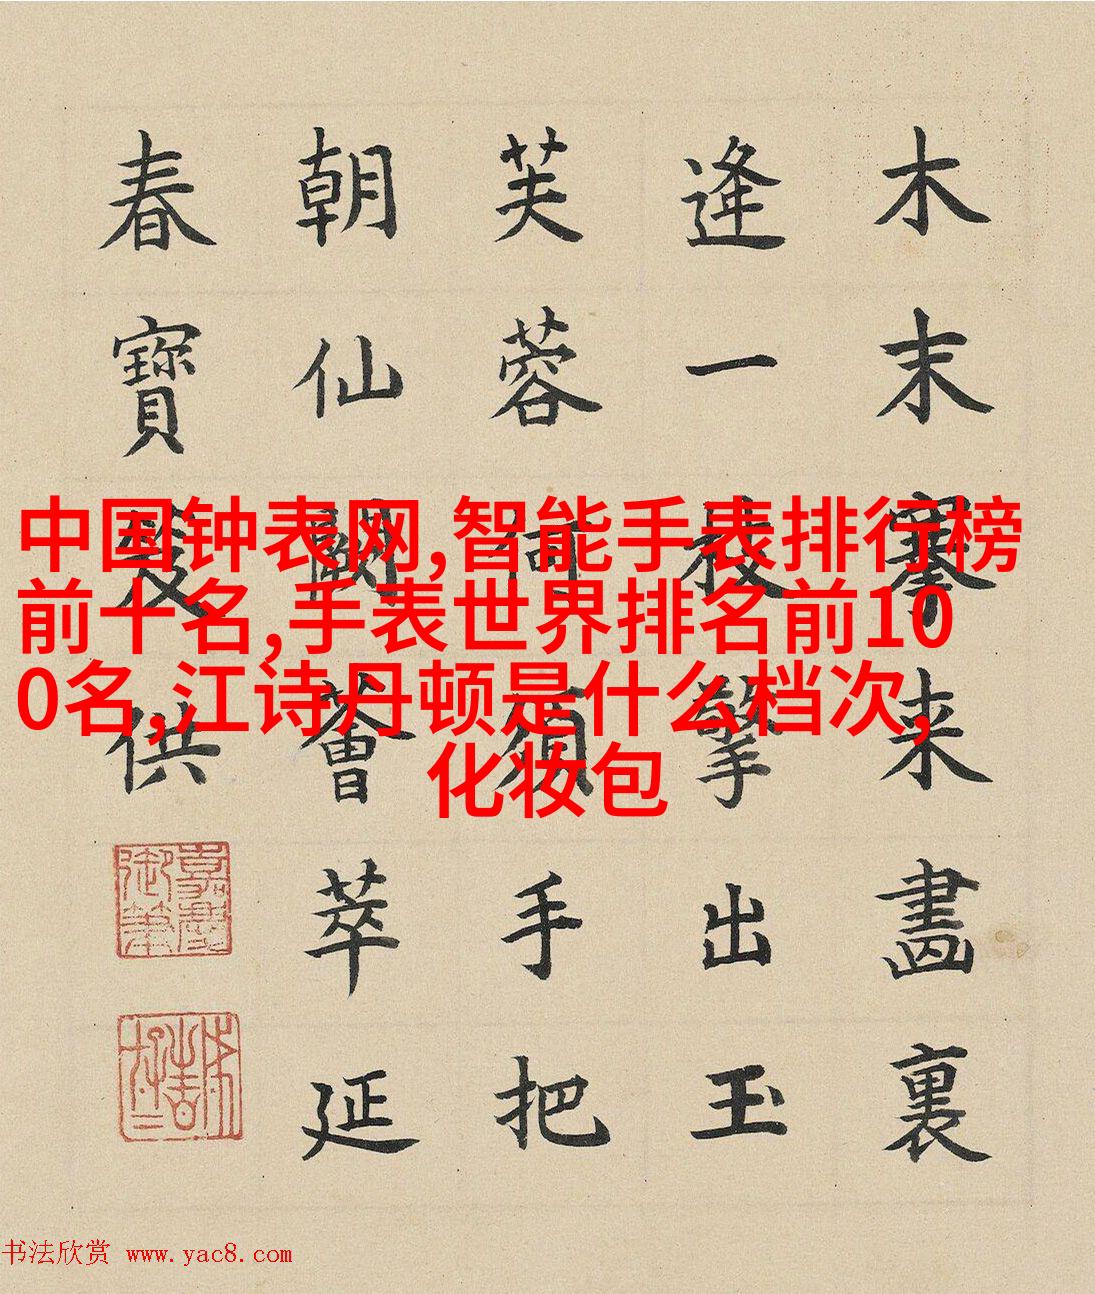 木末搴来畫裏
逢一枝擎出玉
芙蓉何須手把
朝仙闕薈萃延
春寶笈供
嘉慶御筆
中国钟表网,智能手表排行榜
前十名,手表世界排名前10
0名,江诗丹顿是什么档次,
化妆包
书法欣赏 www.yac8.com